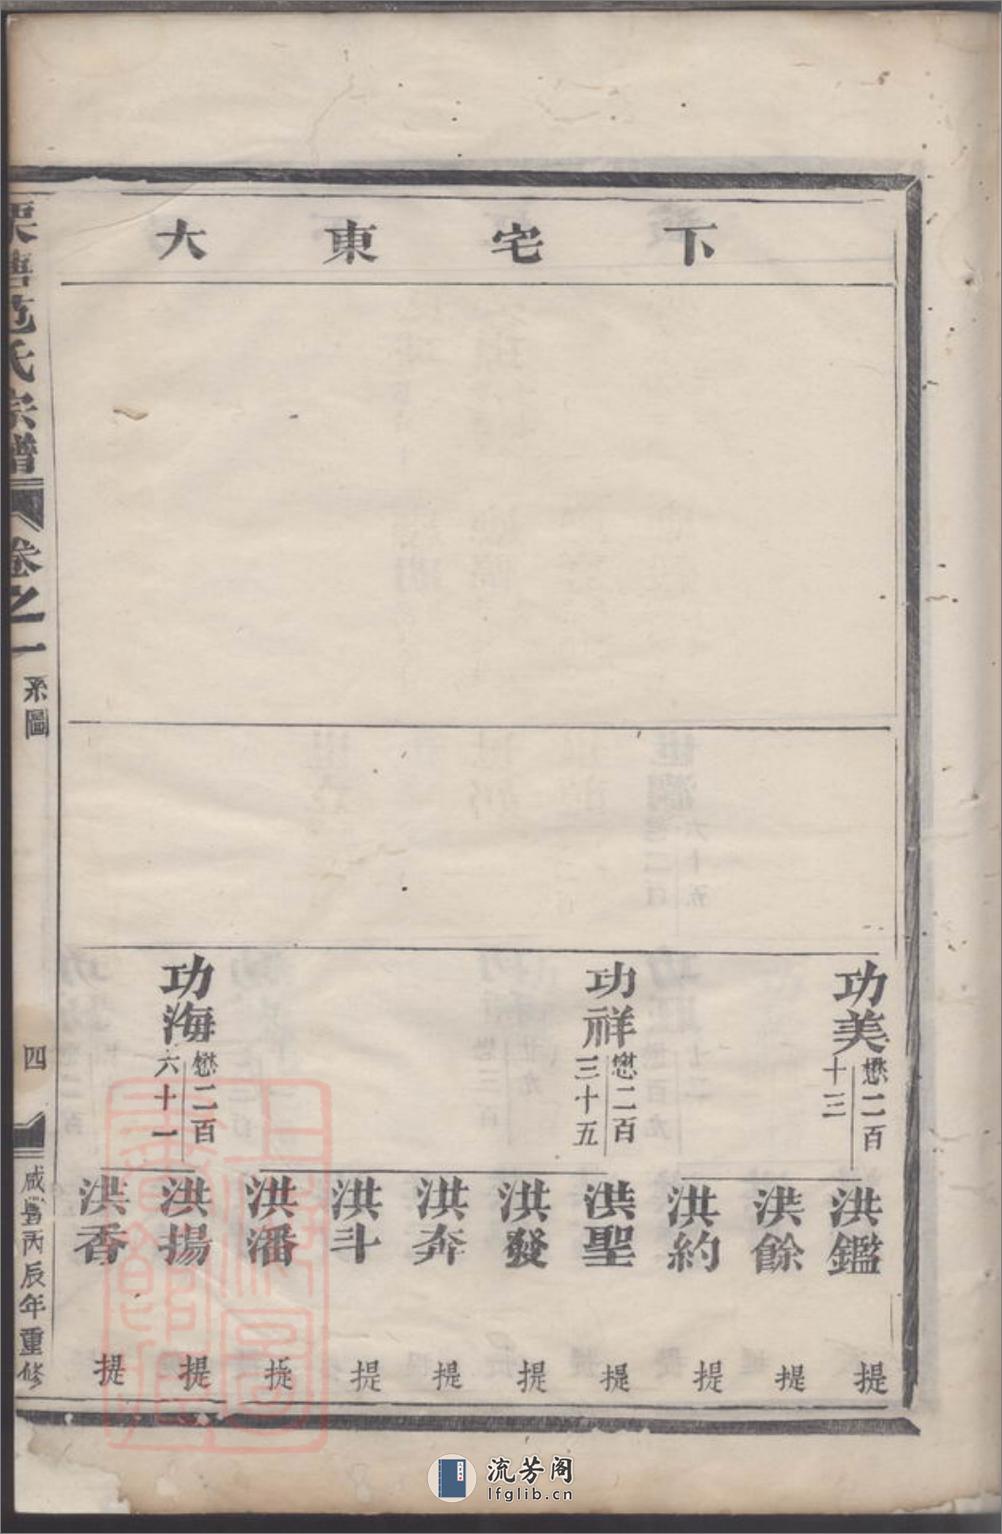 下宅東大
功美 懋二百十三
洪鑑 提
洪餘 提
洪約 提
功祥 懋二百三十五
洪聖 提
洪發 提
洪奔 提
洪斗 提
洪潘 提
功海 懋二百六十一
洪揚 提
洪香 提
栗塘范氏宗譜 卷之一 系圖 四 咸豐丙辰年重修
流芳阁
lfglib.cn